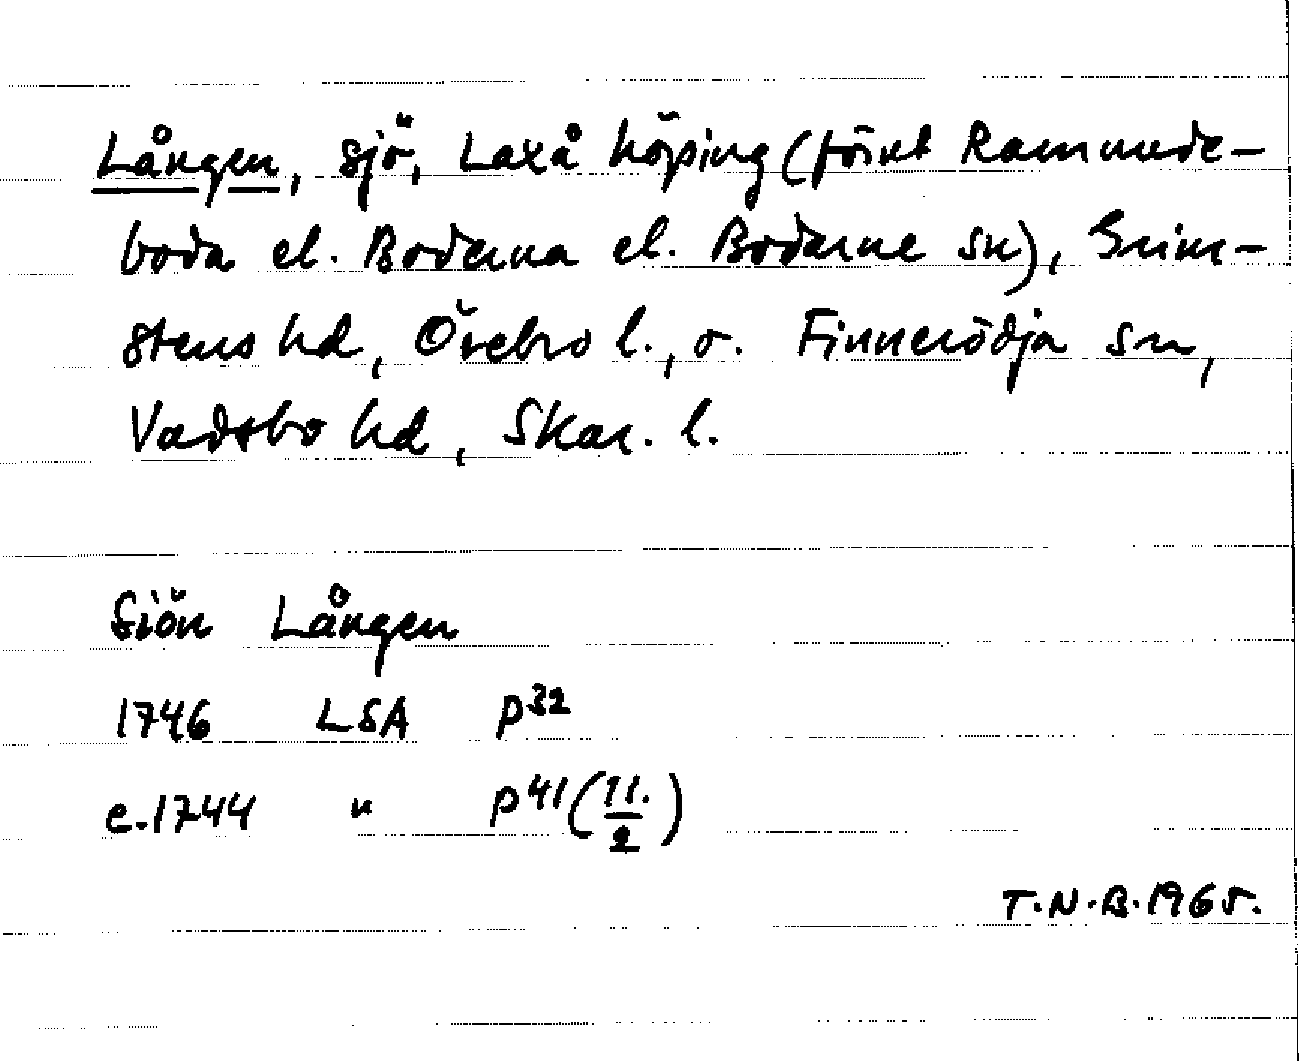 Lången, sjö, Laxå köping (förut Ramunde-
boda el. Boderna el. Bodarne sn), Grim-
stens hd, Örebro l., o. Finnerödja sn,
Vadsbo hd, Skar. l.
Siön Lången
1746 LSA P³²
c.1744 " P⁴¹(11./2)
T.N.B. 1965.